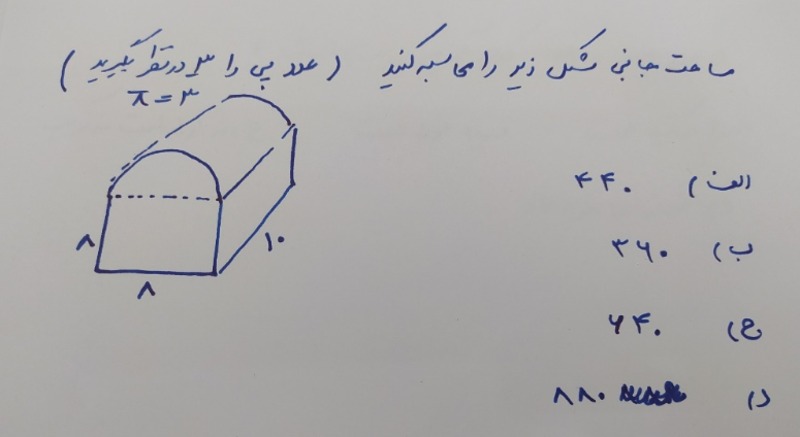 مساحت جانبی شکل زیر را محاسبه کنید ( عدد پی را ۳ در نظر بگیرید )
π = ۳
۸
۱۰
۸
الف) ۴۴۰
ب) ۳۶۰
ج) ۶۴۰
د) ۸۸۰